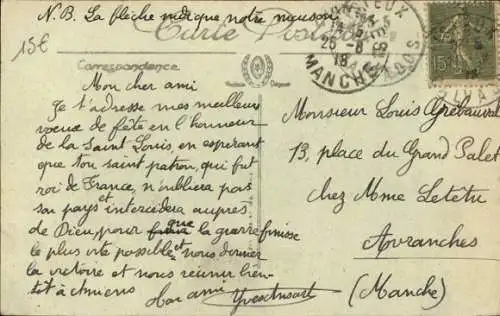 N.B. La flèche indique notre maison
15€
Carte Postale
Correspondance
25-8
18
MANCHE
15
Mon cher ami
Je t'adresse mes meilleurs
voeux de fête en l'honneur
de la Saint Louis, en espérant
que ton saint patron, qui fut
roi de France, n'oubliera pas
son pays et intercèdera auprès
de Dieu, pour que la guerre finisse
le plus vite possible et nous donner
la victoire et nous réunir bien-
tôt à Amiens
Ton ami
Monsieur Louis
13, place du Grand Palet
chez Mme Letetu
Avranches
(Manche)